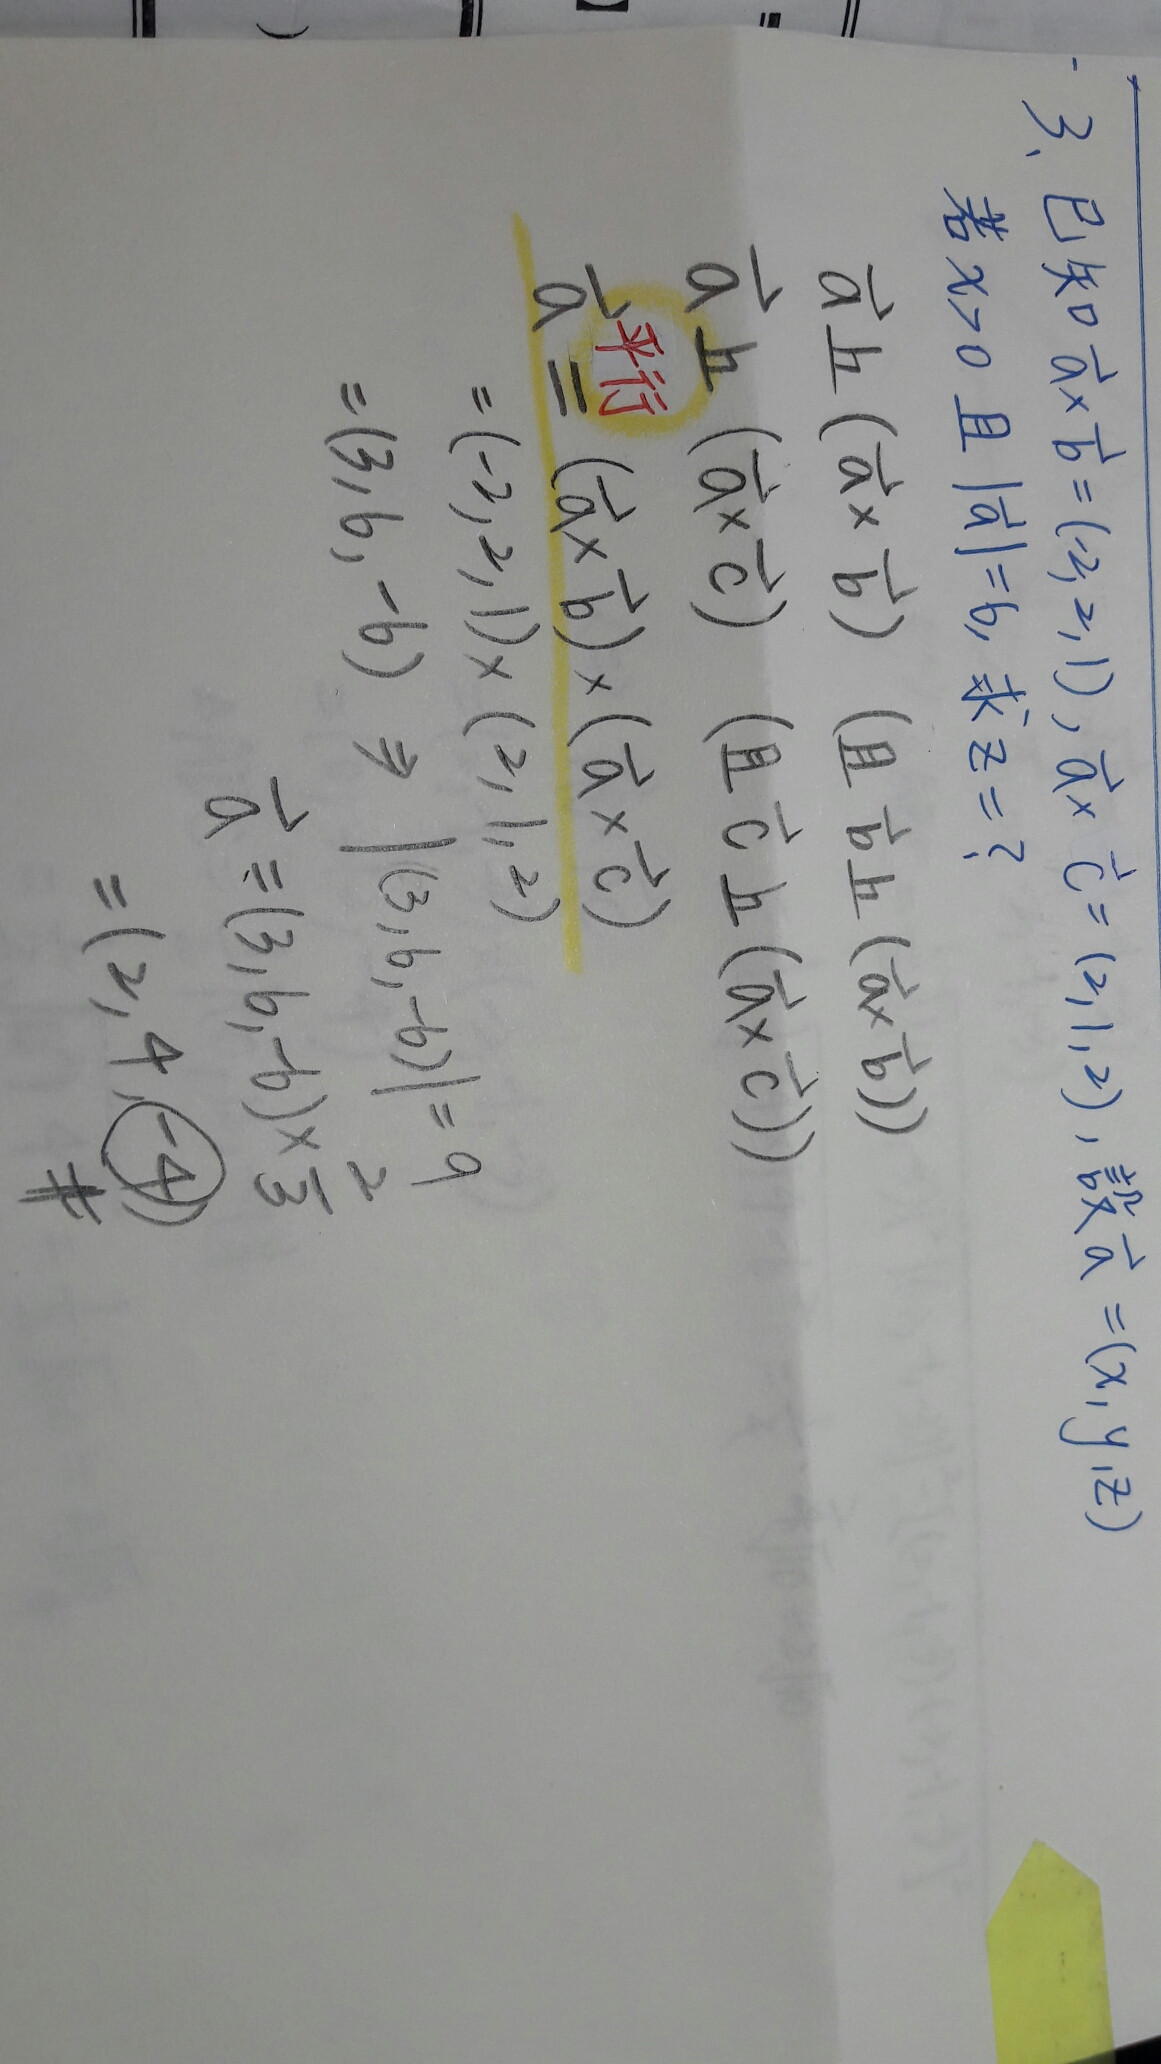 3、已知 a⃗×b⃗=(-2,2,1), a⃗×c⃗=(2,1,2), 設a⃗=(x,y,z)
若x>0 且 |a⃗|=6, 求z=?
a⃗⊥(a⃗×b⃗) (且 b⃗⊥(a⃗×b⃗))
a⃗⊥(a⃗×c⃗) (且 c⃗⊥(a⃗×c⃗))
平行
a⃗ = (a⃗×b⃗)×(a⃗×c⃗)
=(-2,2,1)×(2,1,2)
=(3,6,-6) ⇒ |(3,6,-6)|=9
a⃗=(3,6,-6)×2/3
=(2,4,-4)
#